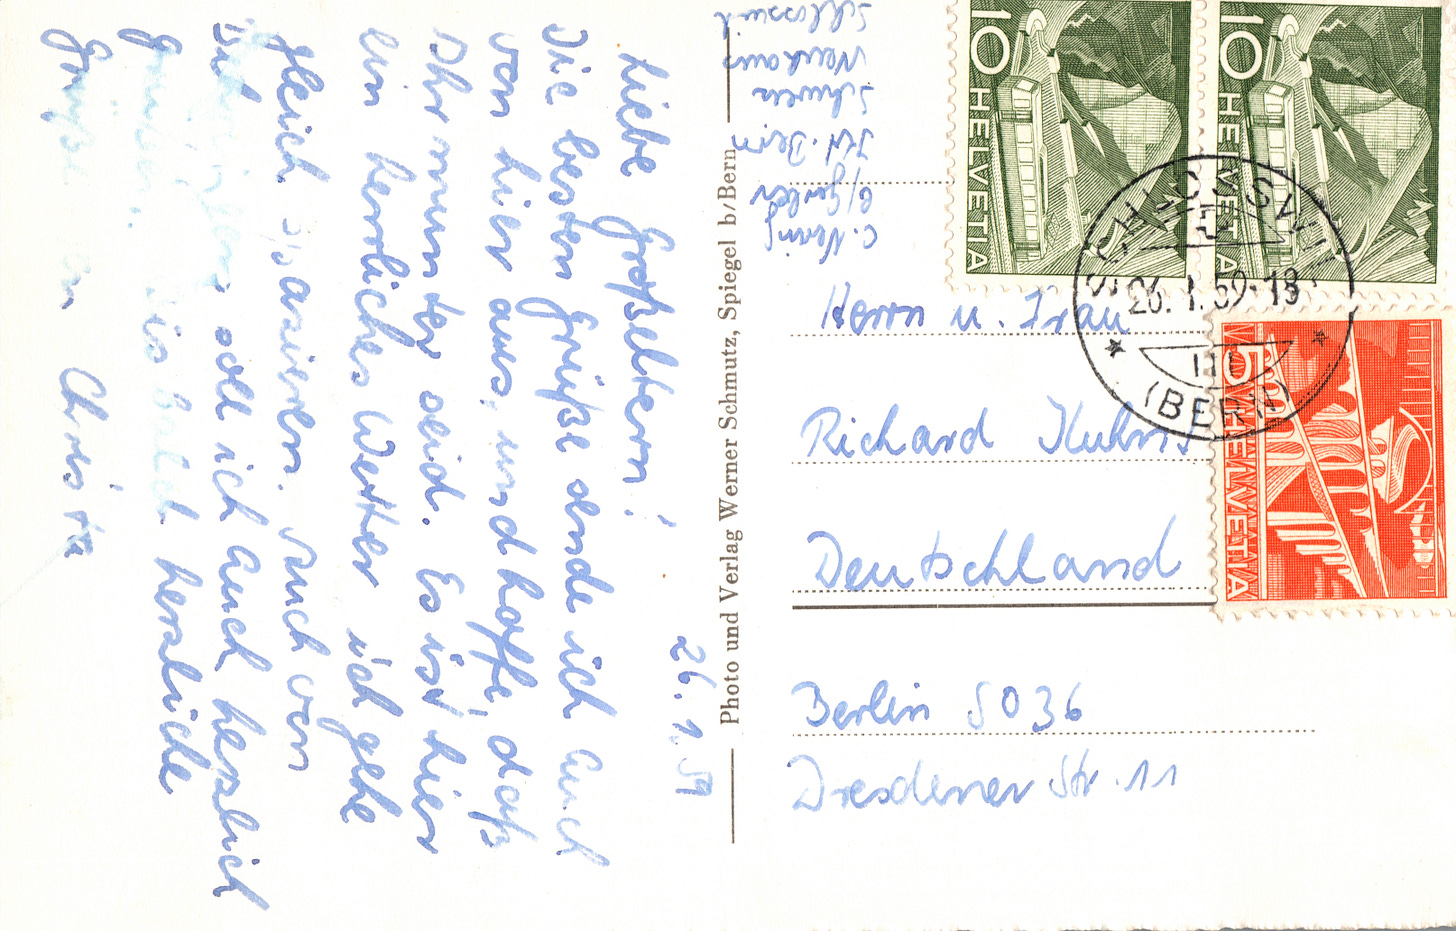 26.1.59
Liebe Großeltern!
Die besten Grüße sende ich Euch
von hier aus, und hoffe, daß
Ihr munter seid. Es ist hier
ein herrliches Wetter ich gehe
gleich spazieren. Auch von
soll ich Euch herzlich
grüßen. Bis bald herzliche
Grüße von Christa
Photo und Verlag Werner Schmutz, Spiegel b/Bern
Kt. Bern
Schweiz
Neuhaus
Schlosswil
Herrn u. Frau
Richard Kuhnt
Deutschland
Berlin SO36
Dresdener Str. 11
10 HELVETIA
10 HELVETIA
5 HELVETIA
SCHLOSSWIL
26.1.59-18
(BERN)